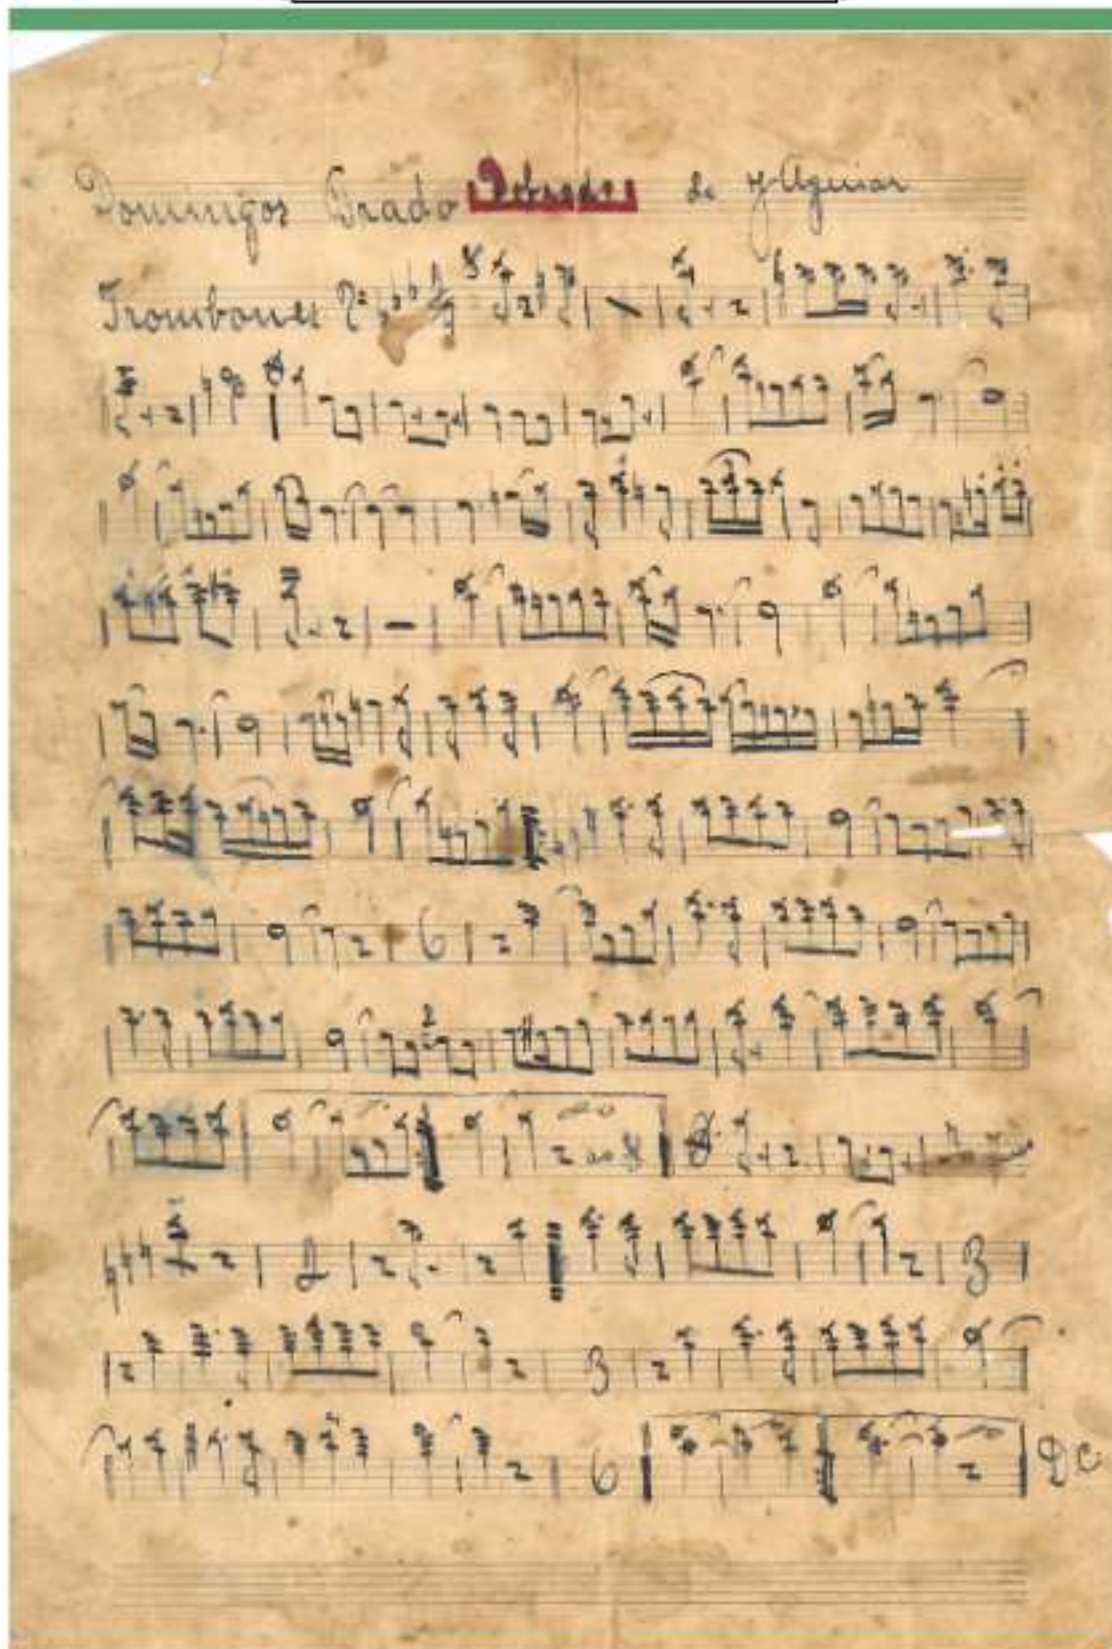 Domingos Prado Dobrado de J Aguiar
Trombones
6
2
3
3
6
D C.